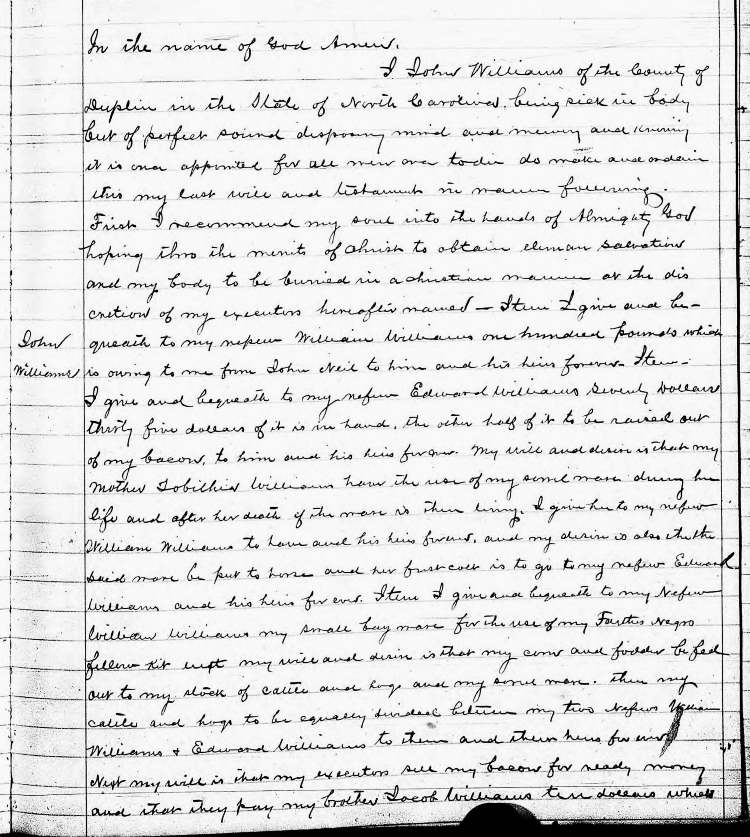 In the name of God Amen.
I John Williams of the County of
Duplin in the State of North Carolina, being sick in body
but of perfect sound disposing mind and memory and knowing
it is once appointed for all men once to die do make and ordain
this my last will and testament in manner following.
First I recommend my soul into the hands of Almighty God
hoping thro the merits of Christ to obtain salvation
and my body to be buried in a christian manner at the dis
cretion of my executors hereafter named — Item I give and be-
John
queath to my nephew William Williams one hundred pounds which
Williams
is owing to me from John Neil to him and his heirs forever - Item -
I give and bequeath to my nefew Edward Williams Seventy Dollars
thirty five dollars of it is in hand, the other half of it to be raised out
of my bacon, to him and his heirs forever. My will and desire is that my
Mother Williams have the use of my sorrel mare during her
life and after her death if the mare is then living, I give her to my nefew
William Williams to have and his heirs forever, and my desire is also the the
said mare be put to horse and her first colt is to go to my nefew Edward
Williams and his heirs for ever. Item I give and bequeath to my Nefew
William Williams my small bay mare for the use of my Negro
fellow Kit next my will and desire is that my corn and fodder be fed
out to my stock of cattle and hogs and my sorrel mare. then my
cattle and hogs to be equally divided between my two Nefews William
Williams & Edward Williams to them and theirs heirs for ever
Next my will is that my executors sell my bacon for ready money
and that they pay my brother Jacob Williams ten dollars which